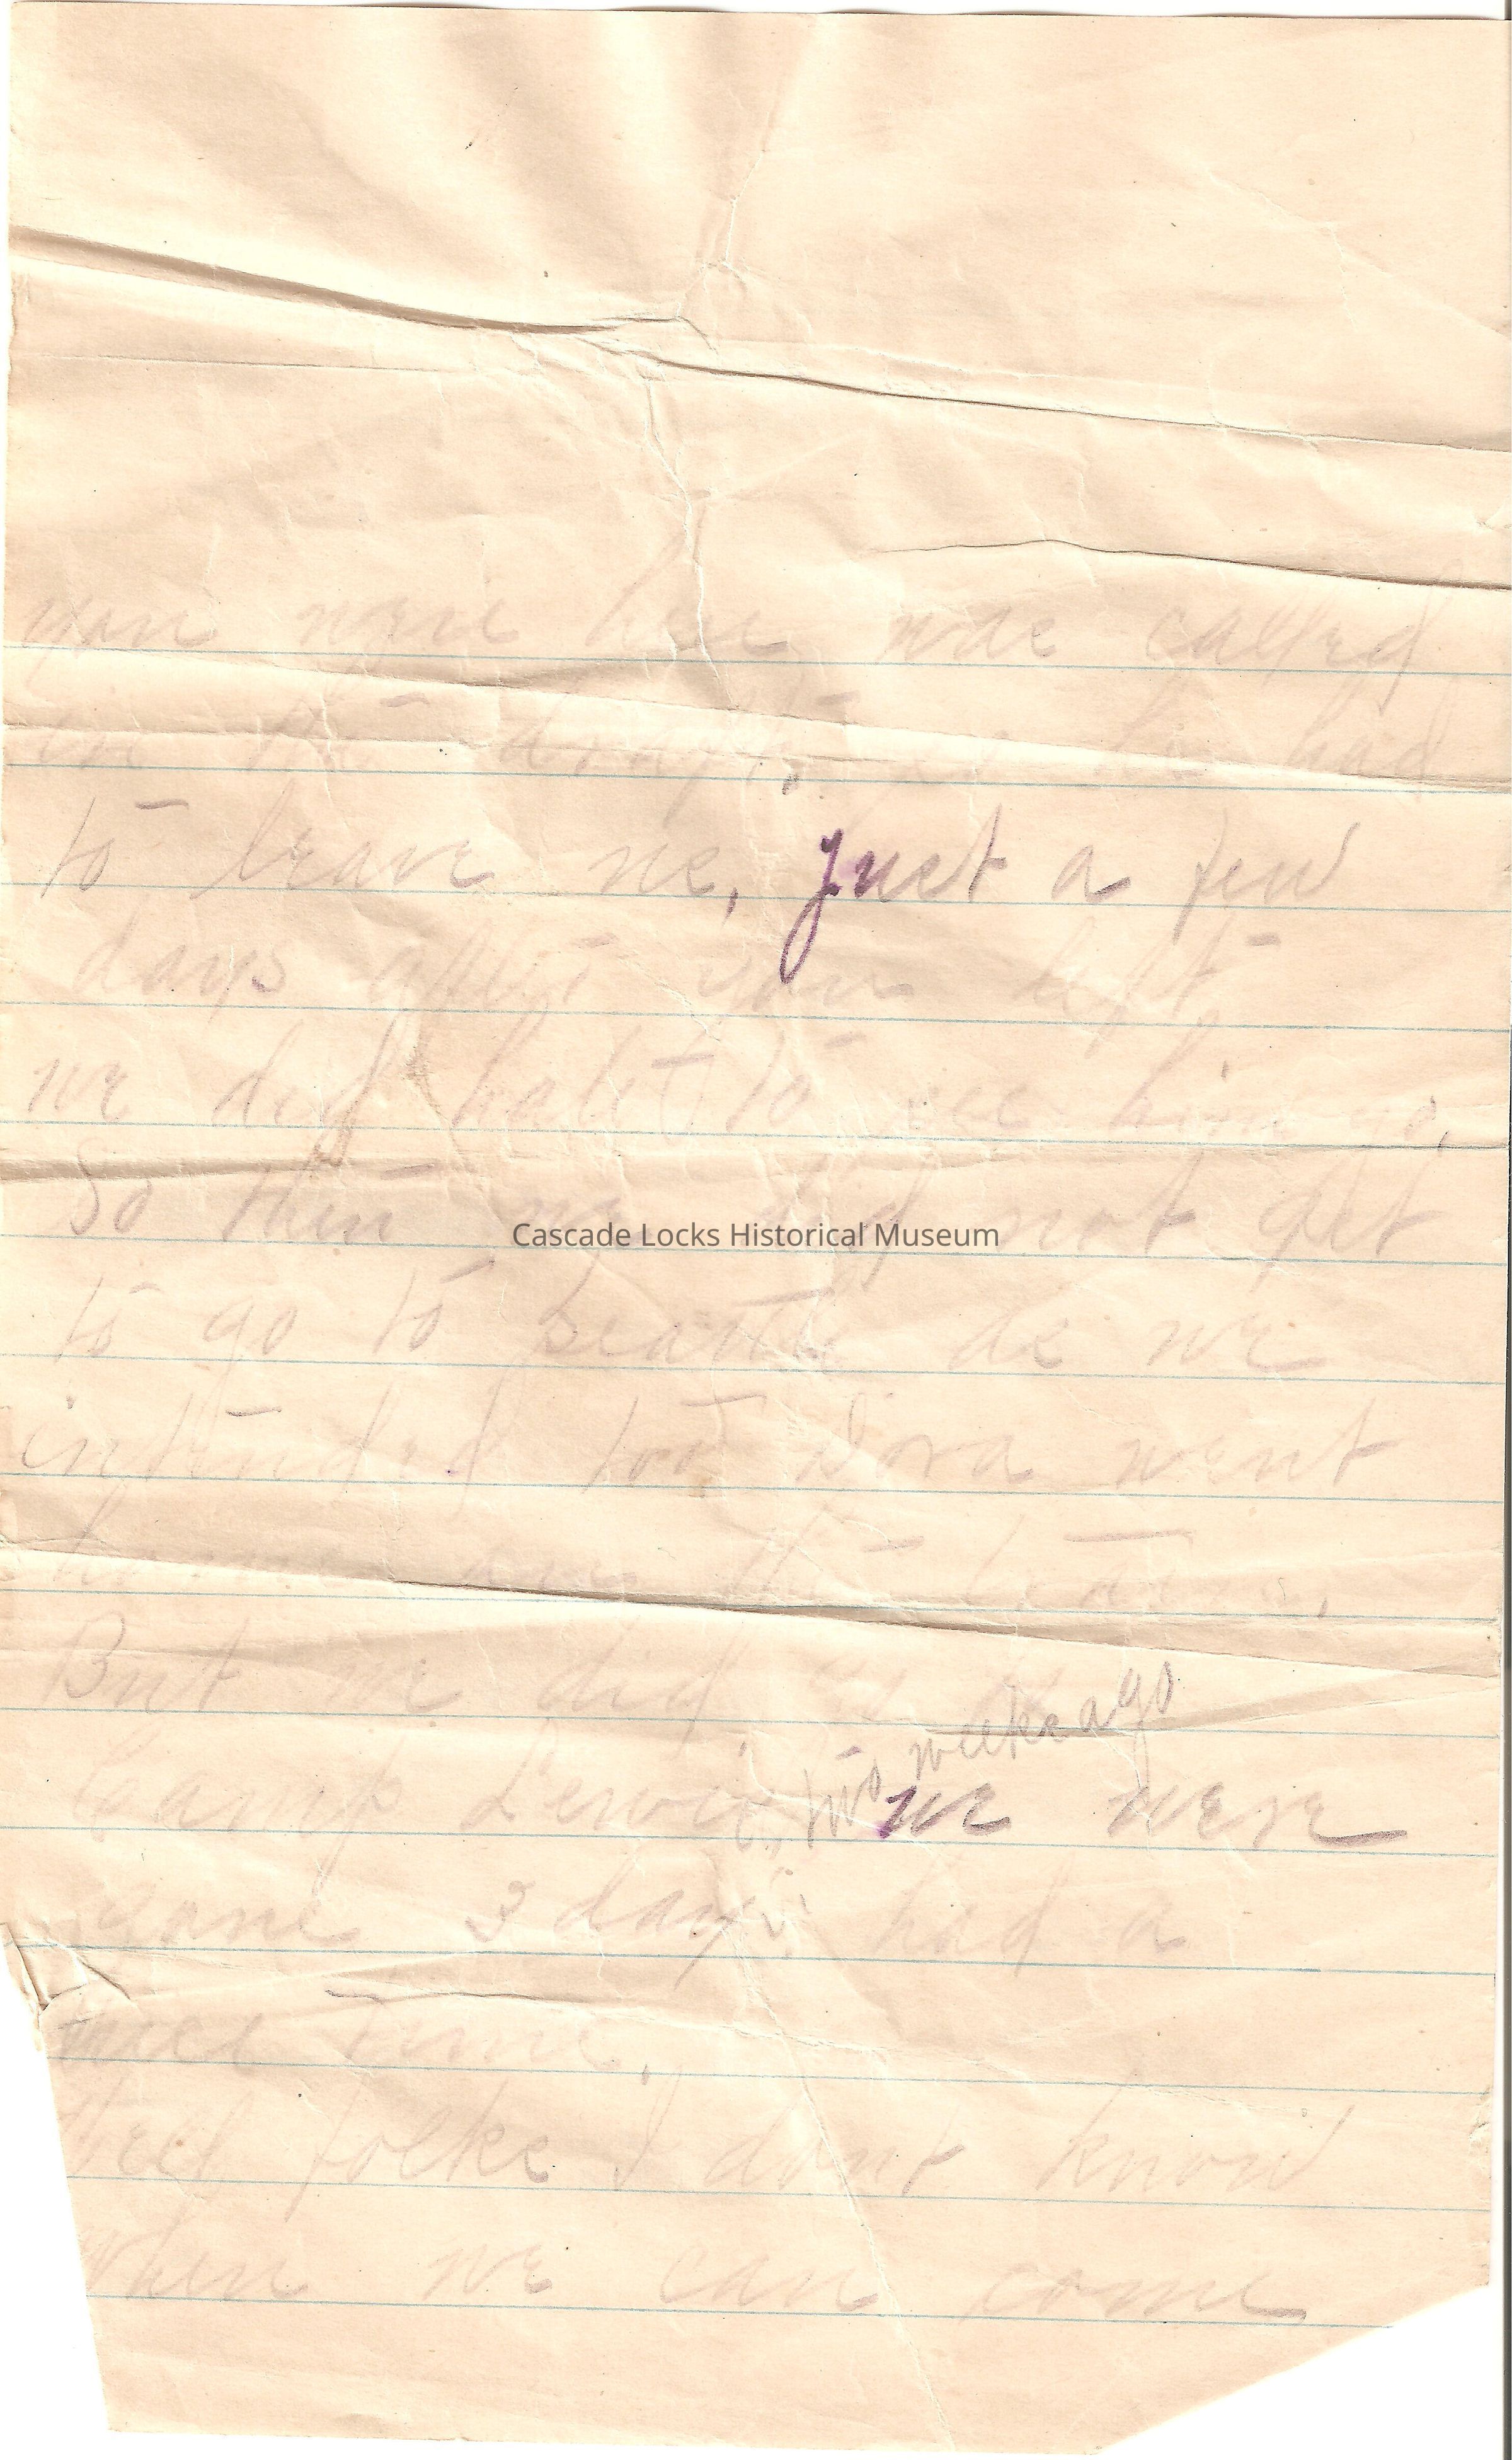 you were here was called
in the draft, so he had
to leave us, just a few
days after you left
we did hate to see him go,
So then we did not get
to go to Seattle as we
intended too Dora went
home on the train,
But we did go to
Camp Lewis, two weeks ago we were
gone 3 days, had a
nice time,
Well folks I dont know
when we can come
Cascade Locks Historical Museum